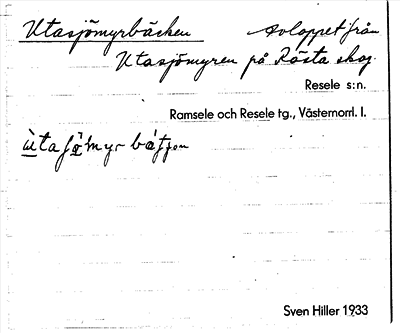 Utasjömyrbäcken Avloppet från
Utasjömyren på Rösta skog.
Resele s:n.
Ramsele och Resele tg., Västernorrl. l.
Sven Hiller 1933